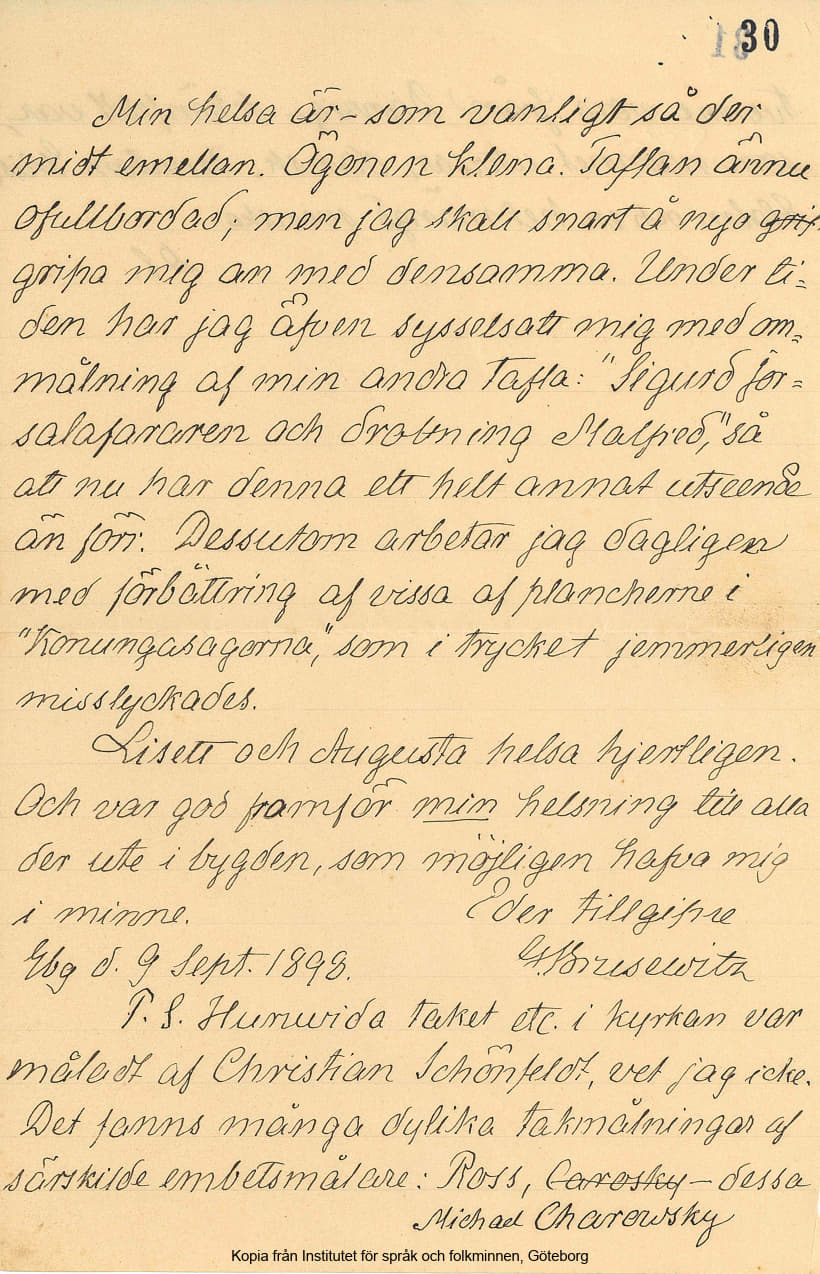 30
31
Min helsa är – som vanligt så der
midt emellan. Ögonen klena. Taflan ännu
ofullbordad; men jag skall snart å nyo grif
gripa mig an med densamma. Under ti=
den har jag äfven sysselsatt mig med om=
målning af min andra tafla: "Sigurd Jor=
salafararen och drottning Malfred," så
att nu har denna ett helt annat utseende
än förr. Dessutom arbetar jag dagligen
med förbättring af vissa af plancherne i
"Konungasagorna", som i trycket jemmerligen
misslyckades.
Lisett och Augusta helsa hjertligen.
Och var god framför min helsning till alla
der ute i bygden, som möjligen hafva mig
i minne. Eder tillgifne
Gbg d. 9 Sept. 1898. G. Brusewitz
P. S. Huruvida taket etc. i kyrkan var
måladt af Christian Schönfeldt, vet jag icke.
Det fanns många dylika takmålningar af
särskilde embetsmålare: Ross, Carosky – dessa
Michael Charowsky
Kopia från Institutet för språk och folkminnen, Göteborg